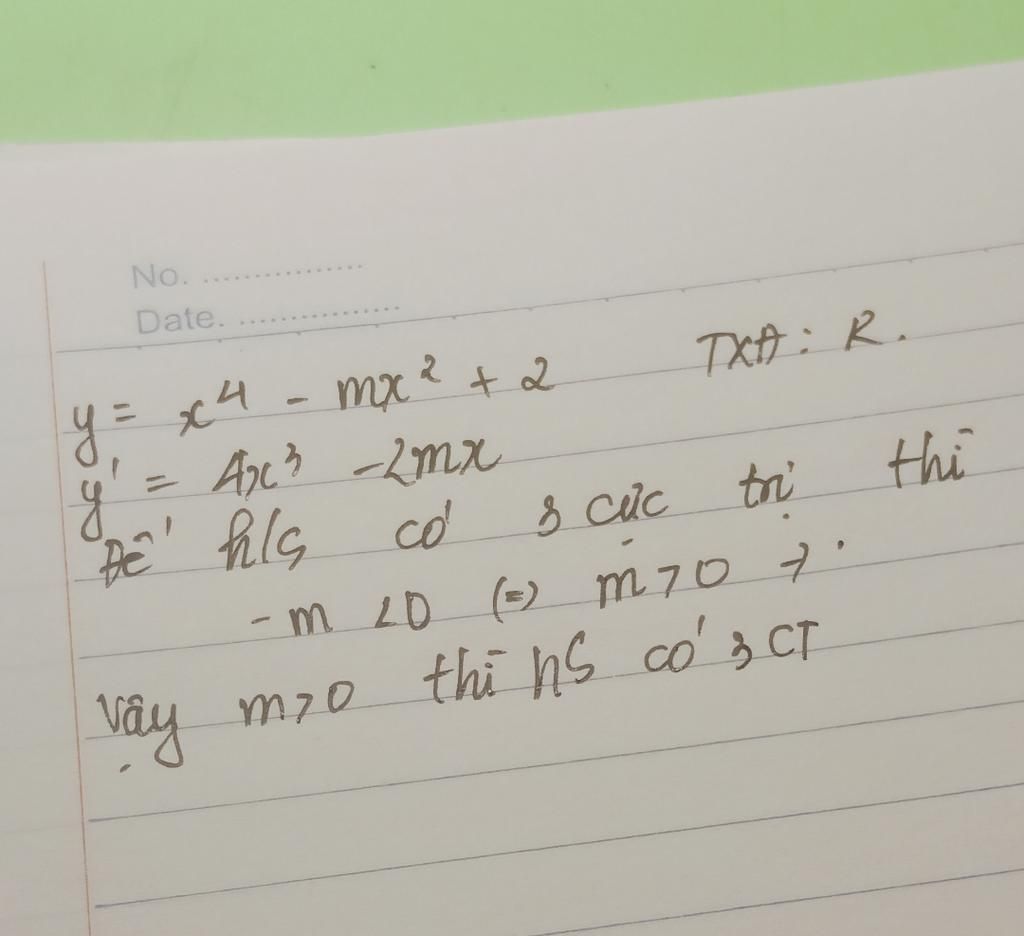 No. ................
Date. ................
y = x⁴ - mx² + 2 TXĐ: R.
y' = 4x³ - 2mx
Để h/s có 3 cực trị thì
-m < 0 (=) m > 0
Vậy m > 0 thì hS có 3 CT